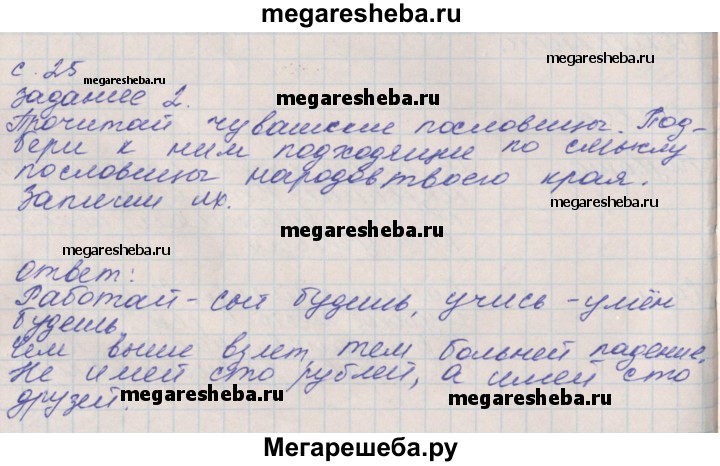 megaresheba.ru
с. 25
megaresheba.ru
megaresheba.ru
задание 2.
megaresheba.ru
Прочитай чувашские пословицы. Под-
бери к ним подходящие по смыслу
пословицы народов твоего края.
Запиши их.
megaresheba.ru
megaresheba.ru
megaresheba.ru
ответ:
Работай - сыт будешь, учись - умён
будешь.
Чем выше взлет, тем больней падение.
Не имей сто рублей, а имей сто
друзей.
megaresheba.ru
megaresheba.ru
Мегарешеба.ру